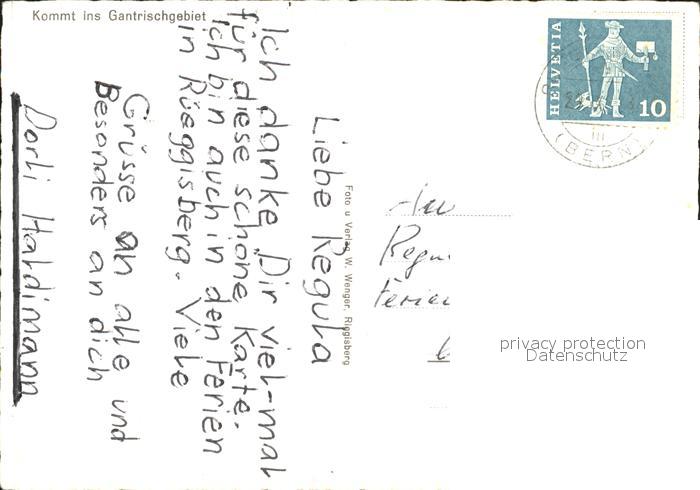 Kommt ins Gantrischgebiet
Liebe Regula
Ich danke Dir viel-mal
für diese schöne Karte.
Ich bin auch in den Ferien
in Rüeggisberg. Viele
Grüsse an alle und
Besonders an dich
Dorli Haldimann
Foto u Verlag W. Wenger, Riggisberg
HELVETIA
10
(BERN)
privacy protection
Datenschutz